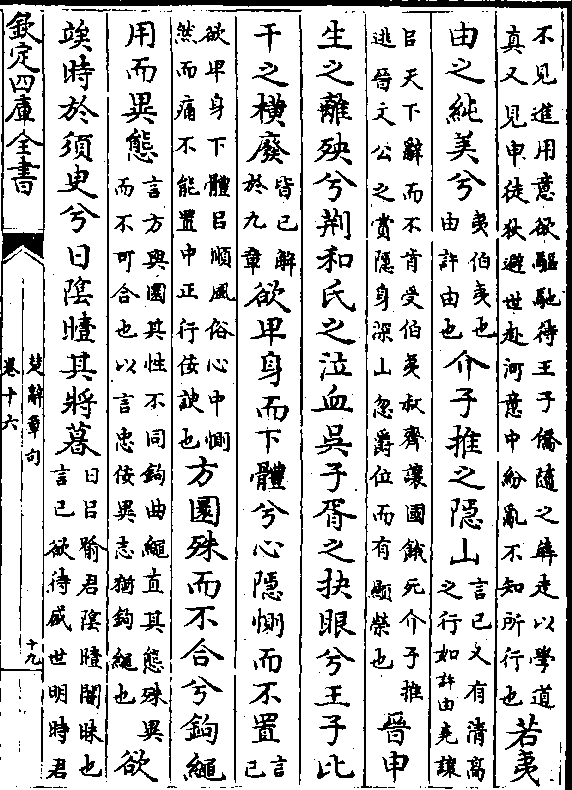 不見進用意欲驅馳待王子僑隨之奔走以學道
真又見申徒狄避世赴河意中紛亂不知所行也
若夷
由之純美兮
夷伯夷也
由許由也
介子推之隱山
言己又有清高
之行如許由堯讓
吕天下辭而不肯受伯夷叔齊讓國餓死介子推
逃晉文公之賞隱身深山忽爵位而有顯榮也
晉申
生之離殃兮荆和氏之泣血吳子胥之抉眼兮王子比
干之橫廢
皆已解
於九章
欲卑身而下體兮心隱惻而不置
言
己
欲卑身下體吕順風俗心中惻
然而痛不能置中正行佞諛也
方圜殊而不合兮鉤繩
用而異態
言方與圜其性不同鉤曲繩直其態殊異
而不可合也以言忠佞異志猶鉤繩也
欲
竢時於須臾兮日陰曀其將暮
日吕喻君陰曀闇昧也
言己欲待盛世明時君
欽定四庫全書
楚辭章句
卷十六
十九